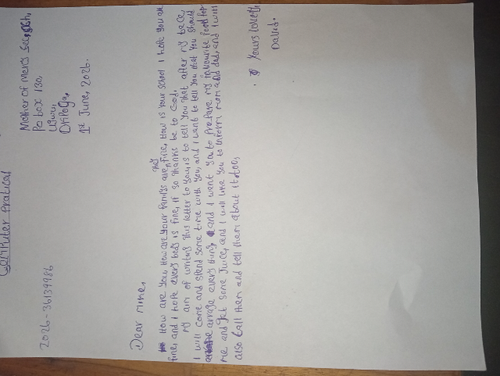 Computer Pratical
2026-36139986
Mother of Mercy Sec, Sch,
Po box 130,
Otukpo,
1st June, 2026.
Dear mine,
How are you, How are your family are fine, How is your school I hope you are
fine, and I hope every body is fine, if so thanks be to God.
My aim of writing this letter to you, is to tell you that after my
I will come and spend some time with you, and I want to tell you that you should
arrange every thing and I want you to prepare my favourite food for
me and get some Juice, and I will like you to inform mom and dad, and I will
also call them and tell them about it too,
Yours
David.